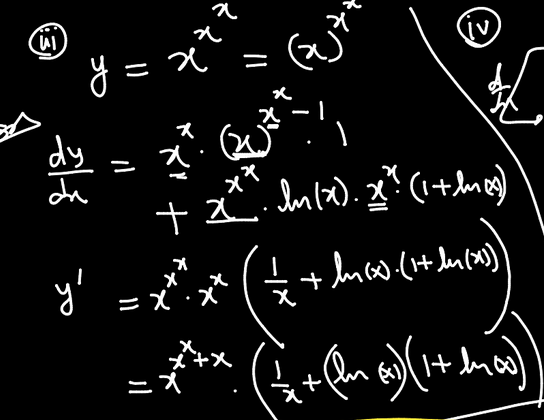 (iii) y = x^{x^x} = (x)^{x^x}
dy/dx = x^x · (x)^{x^x - 1} · 1
+ x^{x^x} · ln(x) · x^x · (1+ln(x))
y' = x^{x^x} · x^x (1/x + ln(x) · (1+ln(x)))
= x^{x^x + x} · (1/x + (ln(x))(1+ln(x))
(iv)